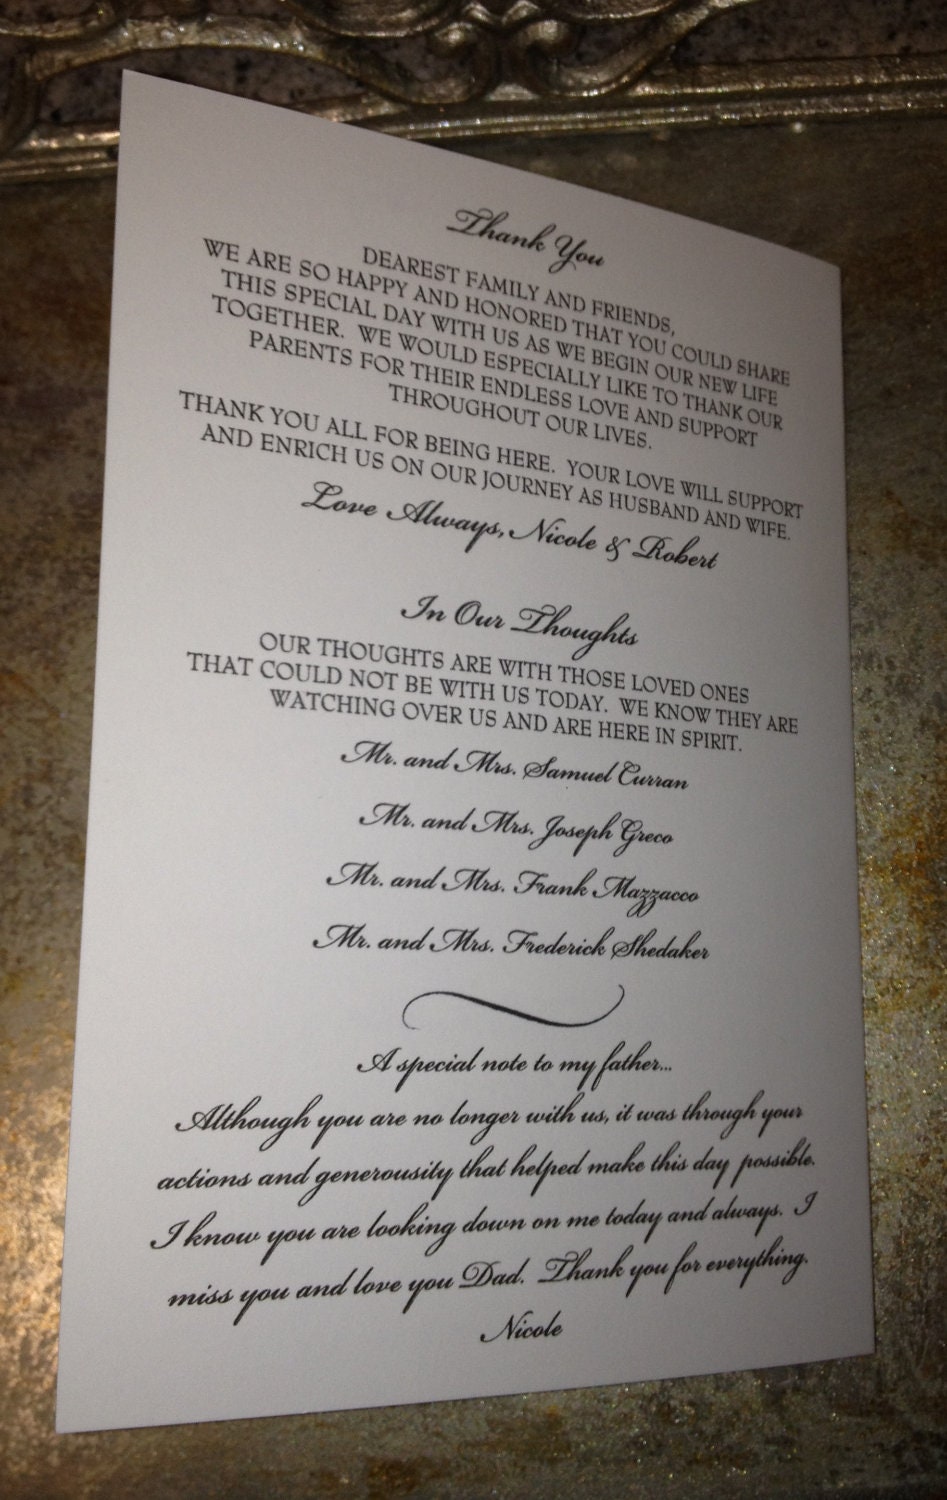 Thank You
DEAREST FAMILY AND FRIENDS,
WE ARE SO HAPPY AND HONORED THAT YOU COULD SHARE
THIS SPECIAL DAY WITH US AS WE BEGIN OUR NEW LIFE
TOGETHER. WE WOULD ESPECIALLY LIKE TO THANK OUR
PARENTS FOR THEIR ENDLESS LOVE AND SUPPORT
THROUGHOUT OUR LIVES.
THANK YOU ALL FOR BEING HERE. YOUR LOVE WILL SUPPORT
AND ENRICH US ON OUR JOURNEY AS HUSBAND AND WIFE.
Love Always, Nicole & Robert
In Our Thoughts
OUR THOUGHTS ARE WITH THOSE LOVED ONES
THAT COULD NOT BE WITH US TODAY. WE KNOW THEY ARE
WATCHING OVER US AND ARE HERE IN SPIRIT.
Mr. and Mrs. Samuel Curran
Mr. and Mrs. Joseph Greco
Mr. and Mrs. Frank Mazzacco
Mr. and Mrs. Frederick Shedaker
A special note to my father...
Although you are no longer with us, it was through your
actions and generousity that helped make this day possible.
I know you are looking down on me today and always. I
miss you and love you Dad. Thank you for everything.
Nicole